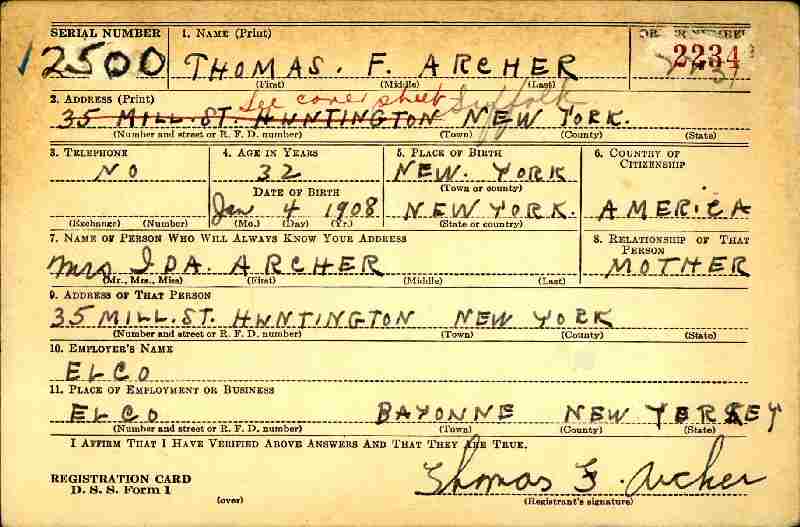 SERIAL NUMBER 1. NAME (Print) ORDER NUMBER
2500 THOMAS. F. ARCHER 2234
(First) (Middle) (Last)
2. ADDRESS (Print) See cover sheet Suffolk
35 MILL. ST. HUNTINGTON NEW YORK.
(Number and street or R. F. D. number) (Town) (County) (State)
3. TELEPHONE 4. AGE IN YEARS 5. PLACE OF BIRTH 6. COUNTRY OF CITIZENSHIP
NO 32 NEW. YORK
(Town or county)
DATE OF BIRTH
Jan 4 1908 NEW YORK. AMERICA
(Exchange) (Number) (Mo.) (Day) (Yr.) (State or country)
7. NAME OF PERSON WHO WILL ALWAYS KNOW YOUR ADDRESS 8. RELATIONSHIP OF THAT PERSON
Mrs IDA. ARCHER MOTHER
(Mr., Mrs., Miss) (First) (Middle) (Last)
9. ADDRESS OF THAT PERSON
35 MILL. ST. HUNTINGTON NEW YORK
(Number and street or R. F. D. number) (Town) (County) (State)
10. EMPLOYER'S NAME
ELCO
11. PLACE OF EMPLOYMENT OR BUSINESS
ELCO BAYONNE NEW YERSEY
(Number and street or R. F. D. number) (Town) (County) (State)
I AFFIRM THAT I HAVE VERIFIED ABOVE ANSWERS AND THAT THEY ARE TRUE.
REGISTRATION CARD
D. S. S. Form 1
(over)
Thomas F. Archer
(Registrant's signature)